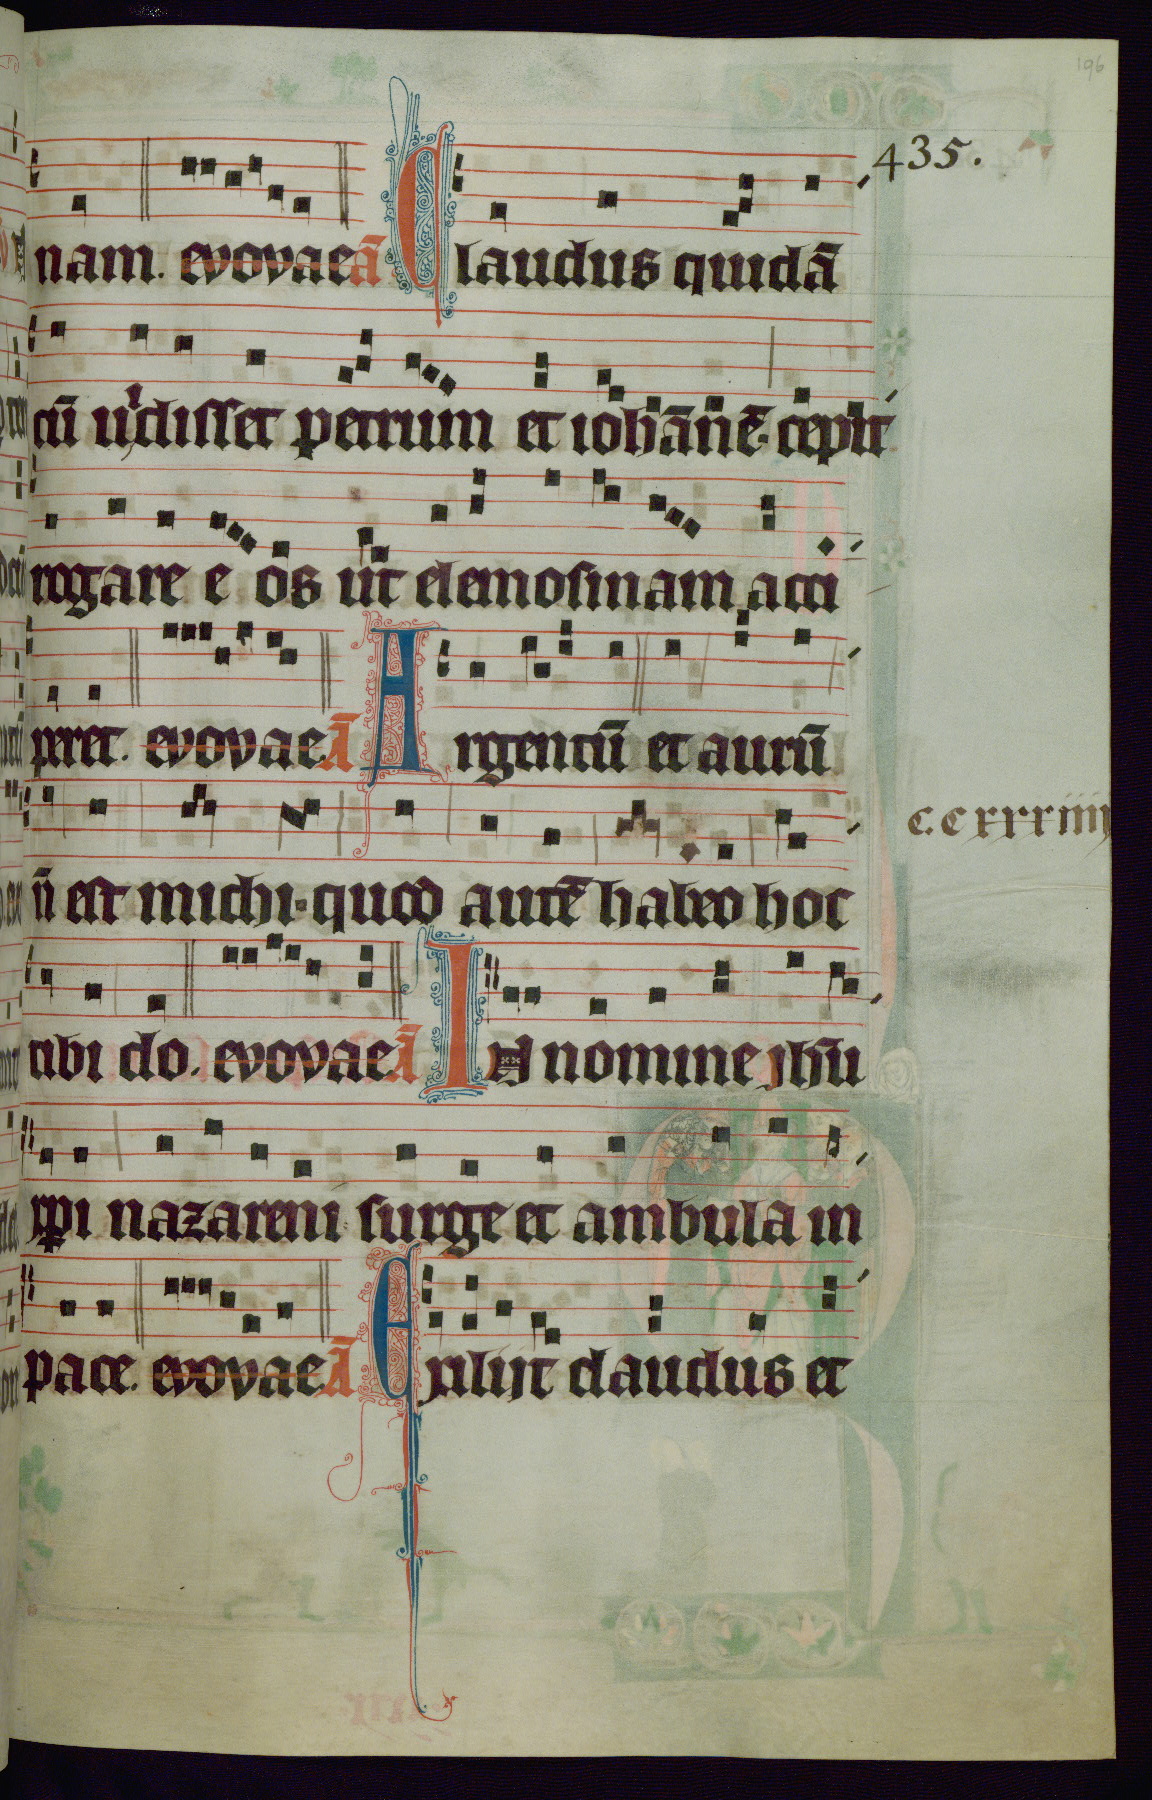 196
435.
nam. evovae ā Claudus quidā
cū vidisset petrum et iohānē. cepit
rogare e os ut elemosinam acci
peret. evovae Ā Argentū et aurū
n̄ est michi. quod autē habeo hoc
c.cxxxiiii
tibi do. evovae Ā IN nomine jhū
xp̄i nazareni surge et ambula in
pace. evovae Ā Exilijt claudus et